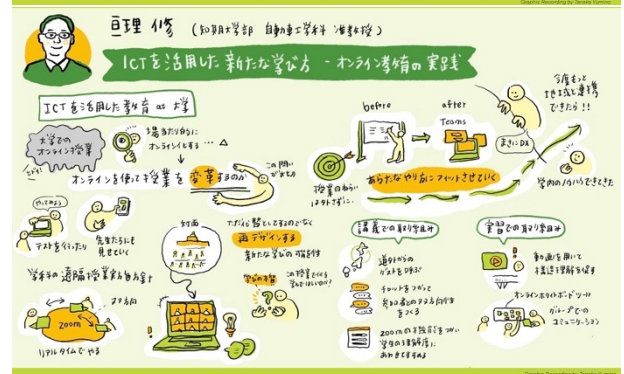 Graphic Recording by Tanaka Yumino
亘理 修 (短期大学部 自動車工学科 准教授)
ICTを活用した新たな学び方 - オンライン教育の実践
ICTを活用した教育 as 大学
大学での
オンライン授業
場当たり的に
オンライン化する…
オンラインを使って授業を変革するのか
この問い
が大切
やってみよう
テストを行ったり
先生たちにも
見せていく
学科の遠隔授業実施方針
双方向
zoom
リアルタイムでやる
対面
ただ代替としてするのでなく
再デザインする
新たな学びの
学びの
この授業でなにを
before
after
Teams
授業のねらい
はかえずに…
あらたなやり方にフィットさせていく
まさにDX
今度もっと
地域と連携
できたら!!
学内のノウハウもできてきた
講義での取り組み
遠方からの
ゲストを呼ぶ
チャットをつかって
双方向性
をつくる
zoomの
学生の理解度に
あわせてすすめる
実習での取り組み
動画を用いて
構造理解を促す
オンラインホワイトボードツール
グループでの
コミュニケーション
Graphic Recording by Tanaka Yumino